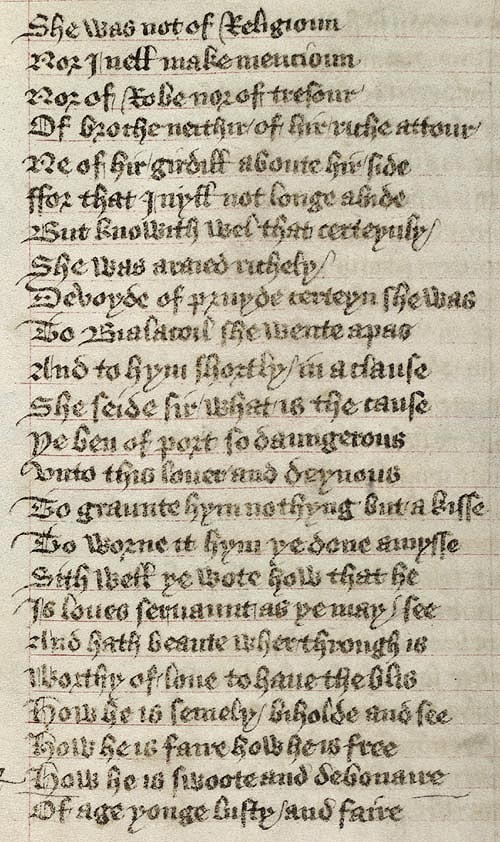 She was not of Religioun
Nor I nell make mencioun
Nor of Robe nor of tresour
Of broche neithir of hir riche attour
Ne of hir girdill aboute hir side
ffor that I nyll not longe abide
But knowith wel that certeynly /
She was araied richely /
Devoyde of pruyde certeyn she was
To Bialacoil she wente apas
And to hym shortly / in a clause
She seide sir / what is the cause
Ye ben of port so daungerous
Vnto this louer and deynous
To graunte hym nothyng but a kisse
To worne it hym ye done amysse
Sith well ye wote how that he
Is loues seruaunt as ye may / see
And hath beaute wher through is
Worthy of loue to haue the blis
How he is semely / biholde and see
How he is faire how he is free
How he is swoote and debonaire
Of age yonge lusty / and faire